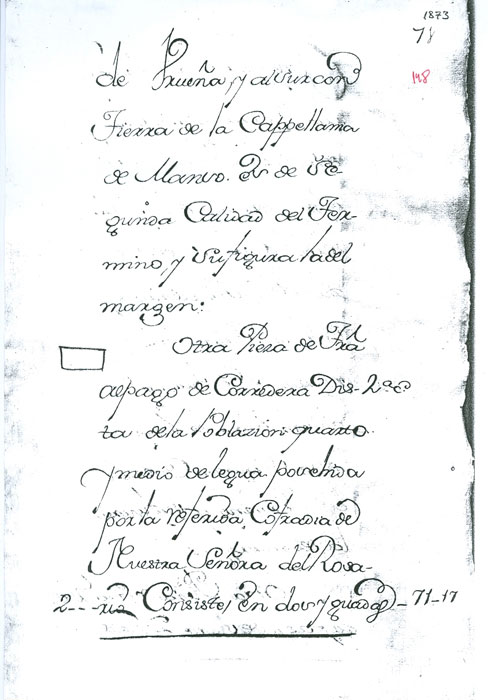 1873
71
148
de Prueña, y al Sur con
Tierra de la Cappellania
de Manso. Es de Se-
gunda Calidad del Ter-
mino, y Su figura la del
margen:
Otra Pieza de Trã
al pago de Corredera Dis-
ta de la Poblazion quarto
y medio de legua posehida
por la referida Cofradia de
Nuestra Señora del Rosa-
2---rio Consiste, en dos y quad - 71-17